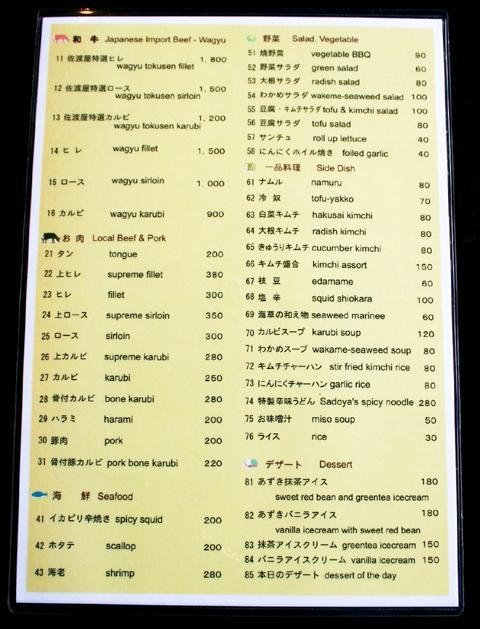 和 牛 Japanese Import Beef - Wagyu
11 佐渡屋特選ヒレ 1,800
wagyu tokusen fillet
12 佐渡屋特選ロース 1,500
wagyu tokusen sirloin
13 佐渡屋特選カルビ 1,200
wagyu tokusen karubi
14 ヒレ wagyu fillet 1,500
15 ロース wagyu sirloin 1,000
16 カルビ wagyu karubi 900
お 肉 Local Beef & Pork
21 タン tongue 200
22 上ヒレ supreme fillet 380
23 ヒレ fillet 300
24 上ロース supreme sirloin 350
25 ロース sirloin 300
26 上カルビ supreme karubi 280
27 カルビ karubi 250
28 骨付カルビ bone karubi 280
29 ハラミ harami 200
30 豚肉 pork 200
31 骨付豚カルビ pork bone karubi 220
海 鮮 Seafood
41 イカピリ辛焼き spicy squid 200
42 ホタテ scallop 200
43 海老 shrimp 280
野菜 Salad, Vegetable
51 焼野菜 vegetable BBQ 90
52 野菜サラダ green salad 60
53 大根サラダ radish salad 80
54 わかめサラダ wakame-seaweed salad 100
55 豆腐・キムチサラダ tofu & kimchi salad 100
56 豆腐サラダ tofu salad 80
57 サンチュ roll up lettuce 40
58 にんにくホイル焼き foiled garlic 40
一品料理 Side Dish
61 ナムル namuru 80
62 冷 奴 tofu-yakko 70
63 白菜キムチ hakusai kimchi 80
64 大根キムチ radish kimchi 80
65 きゅうりキムチ cucumber kimchi 80
66 キムチ盛合 kimchi assort 150
67 枝 豆 edamame 60
68 塩 辛 squid shiokara 100
69 海草の和え物 seaweed marinee 60
70 カルビスープ karubi soup 120
71 わかめスープ wakame-seaweed soup 80
72 キムチチャーハン stir fried kimchi rice 80
73 にんにくチャーハン garlic rice 80
74 特製辛味うどん Sadoya's spicy noodle 280
75 お味噌汁 miso soup 50
76 ライス rice 30
デザート Dessert
81 あずき抹茶アイス 180
sweet red bean and greentea icecream
82 あずきバニラアイス 180
vanilla icecream with sweet red bean
83 抹茶アイスクリーム greentea icecream 150
84 バニラアイスクリーム vanilla icecream 150
85 本日のデザート dessert of the day